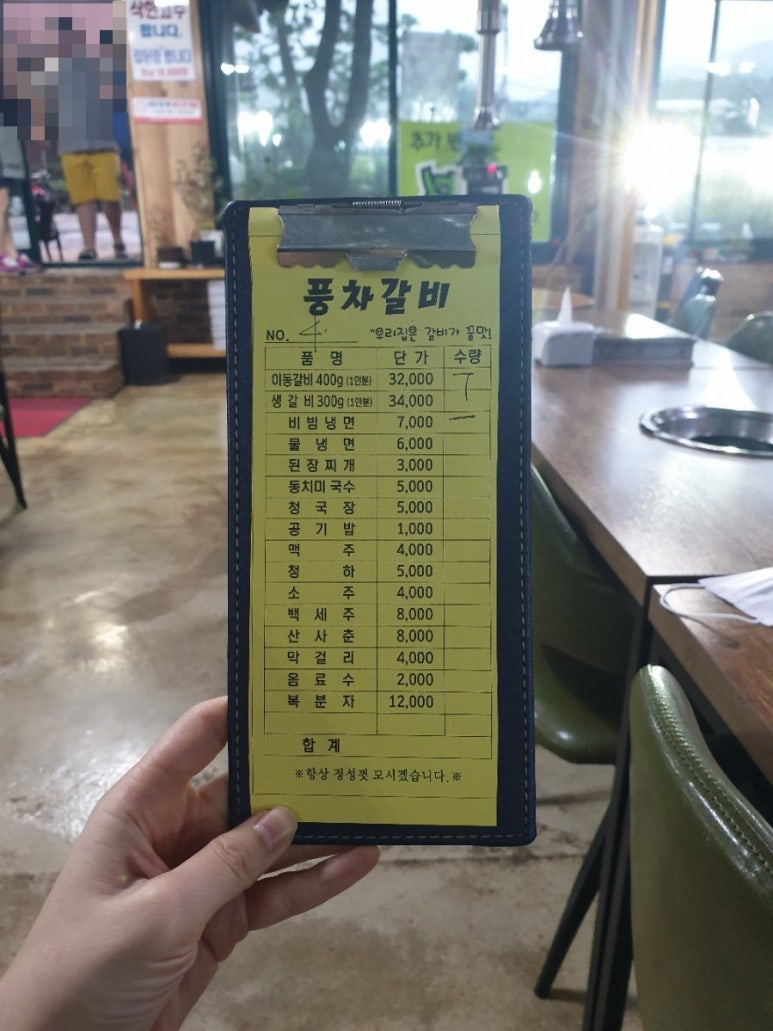 석만세우
합니다.
추가 반
풍차갈비
NO. 4
"우리집은 갈비가 꿀맛!
품 명 단 가 수량
이동갈비 400g (1인분) 32,000 T
생 갈 비 300g (1인분) 34,000
비 빔 냉 면 7,000 一
물 냉 면 6,000
된 장 찌 개 3,000
동치미 국수 5,000
청 국 장 5,000
공 기 밥 1,000
맥 주 4,000
청 하 5,000
소 주 4,000
백 세 주 8,000
산 사 춘 8,000
막 걸 리 4,000
음 료 수 2,000
복 분 자 12,000
합 계
※항상 정성껏 모시겠습니다.※